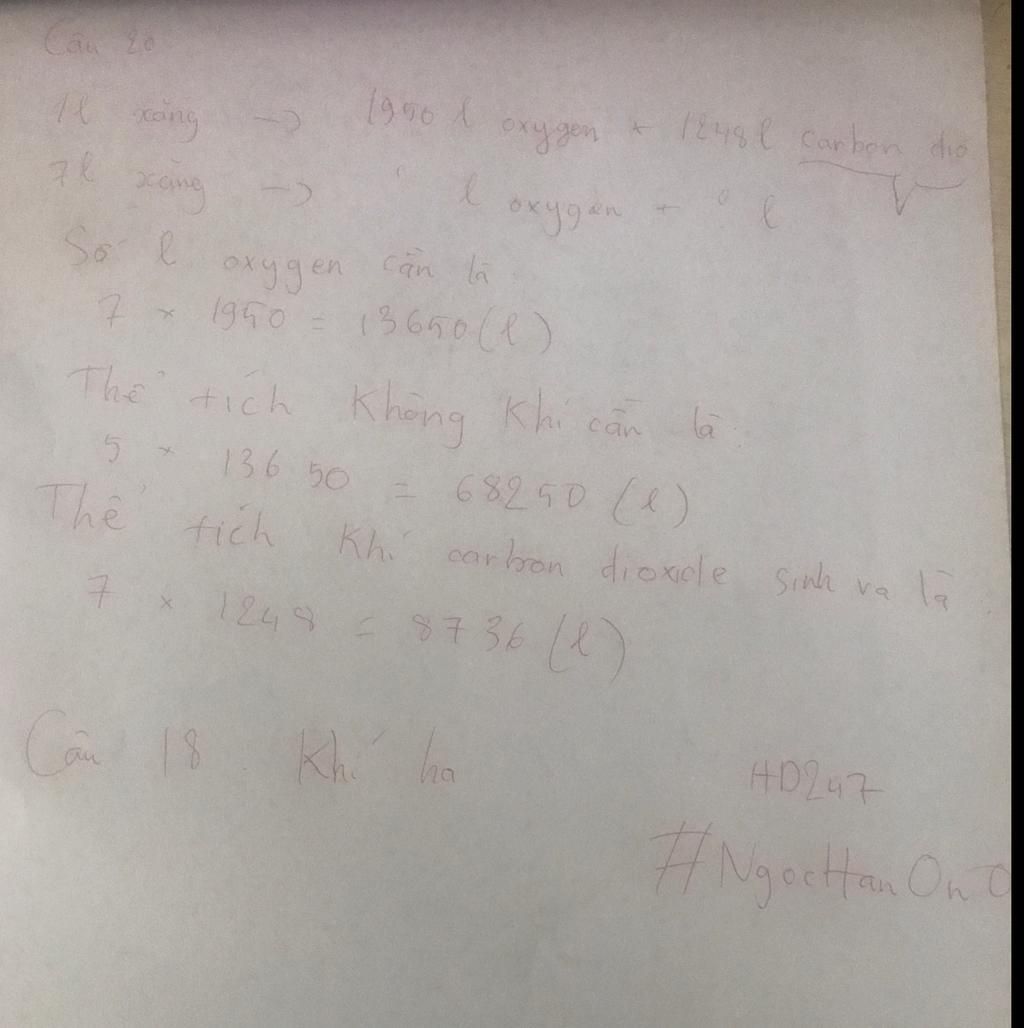 Câu 20
1l xăng → 1950 l oxygen + 1248l carbon dio
7l xăng → l oxygen + l
Số l oxygen cần là
7 × 1950 = 13650 (l)
Thể tích không khí cần là:
5 × 13650 = 68250 (l)
Thể tích khí carbon dioxide sinh ra là:
7 × 1248 = 8736 (l)
Câu 18. Khí ha
HD247
#NgocHanOnO